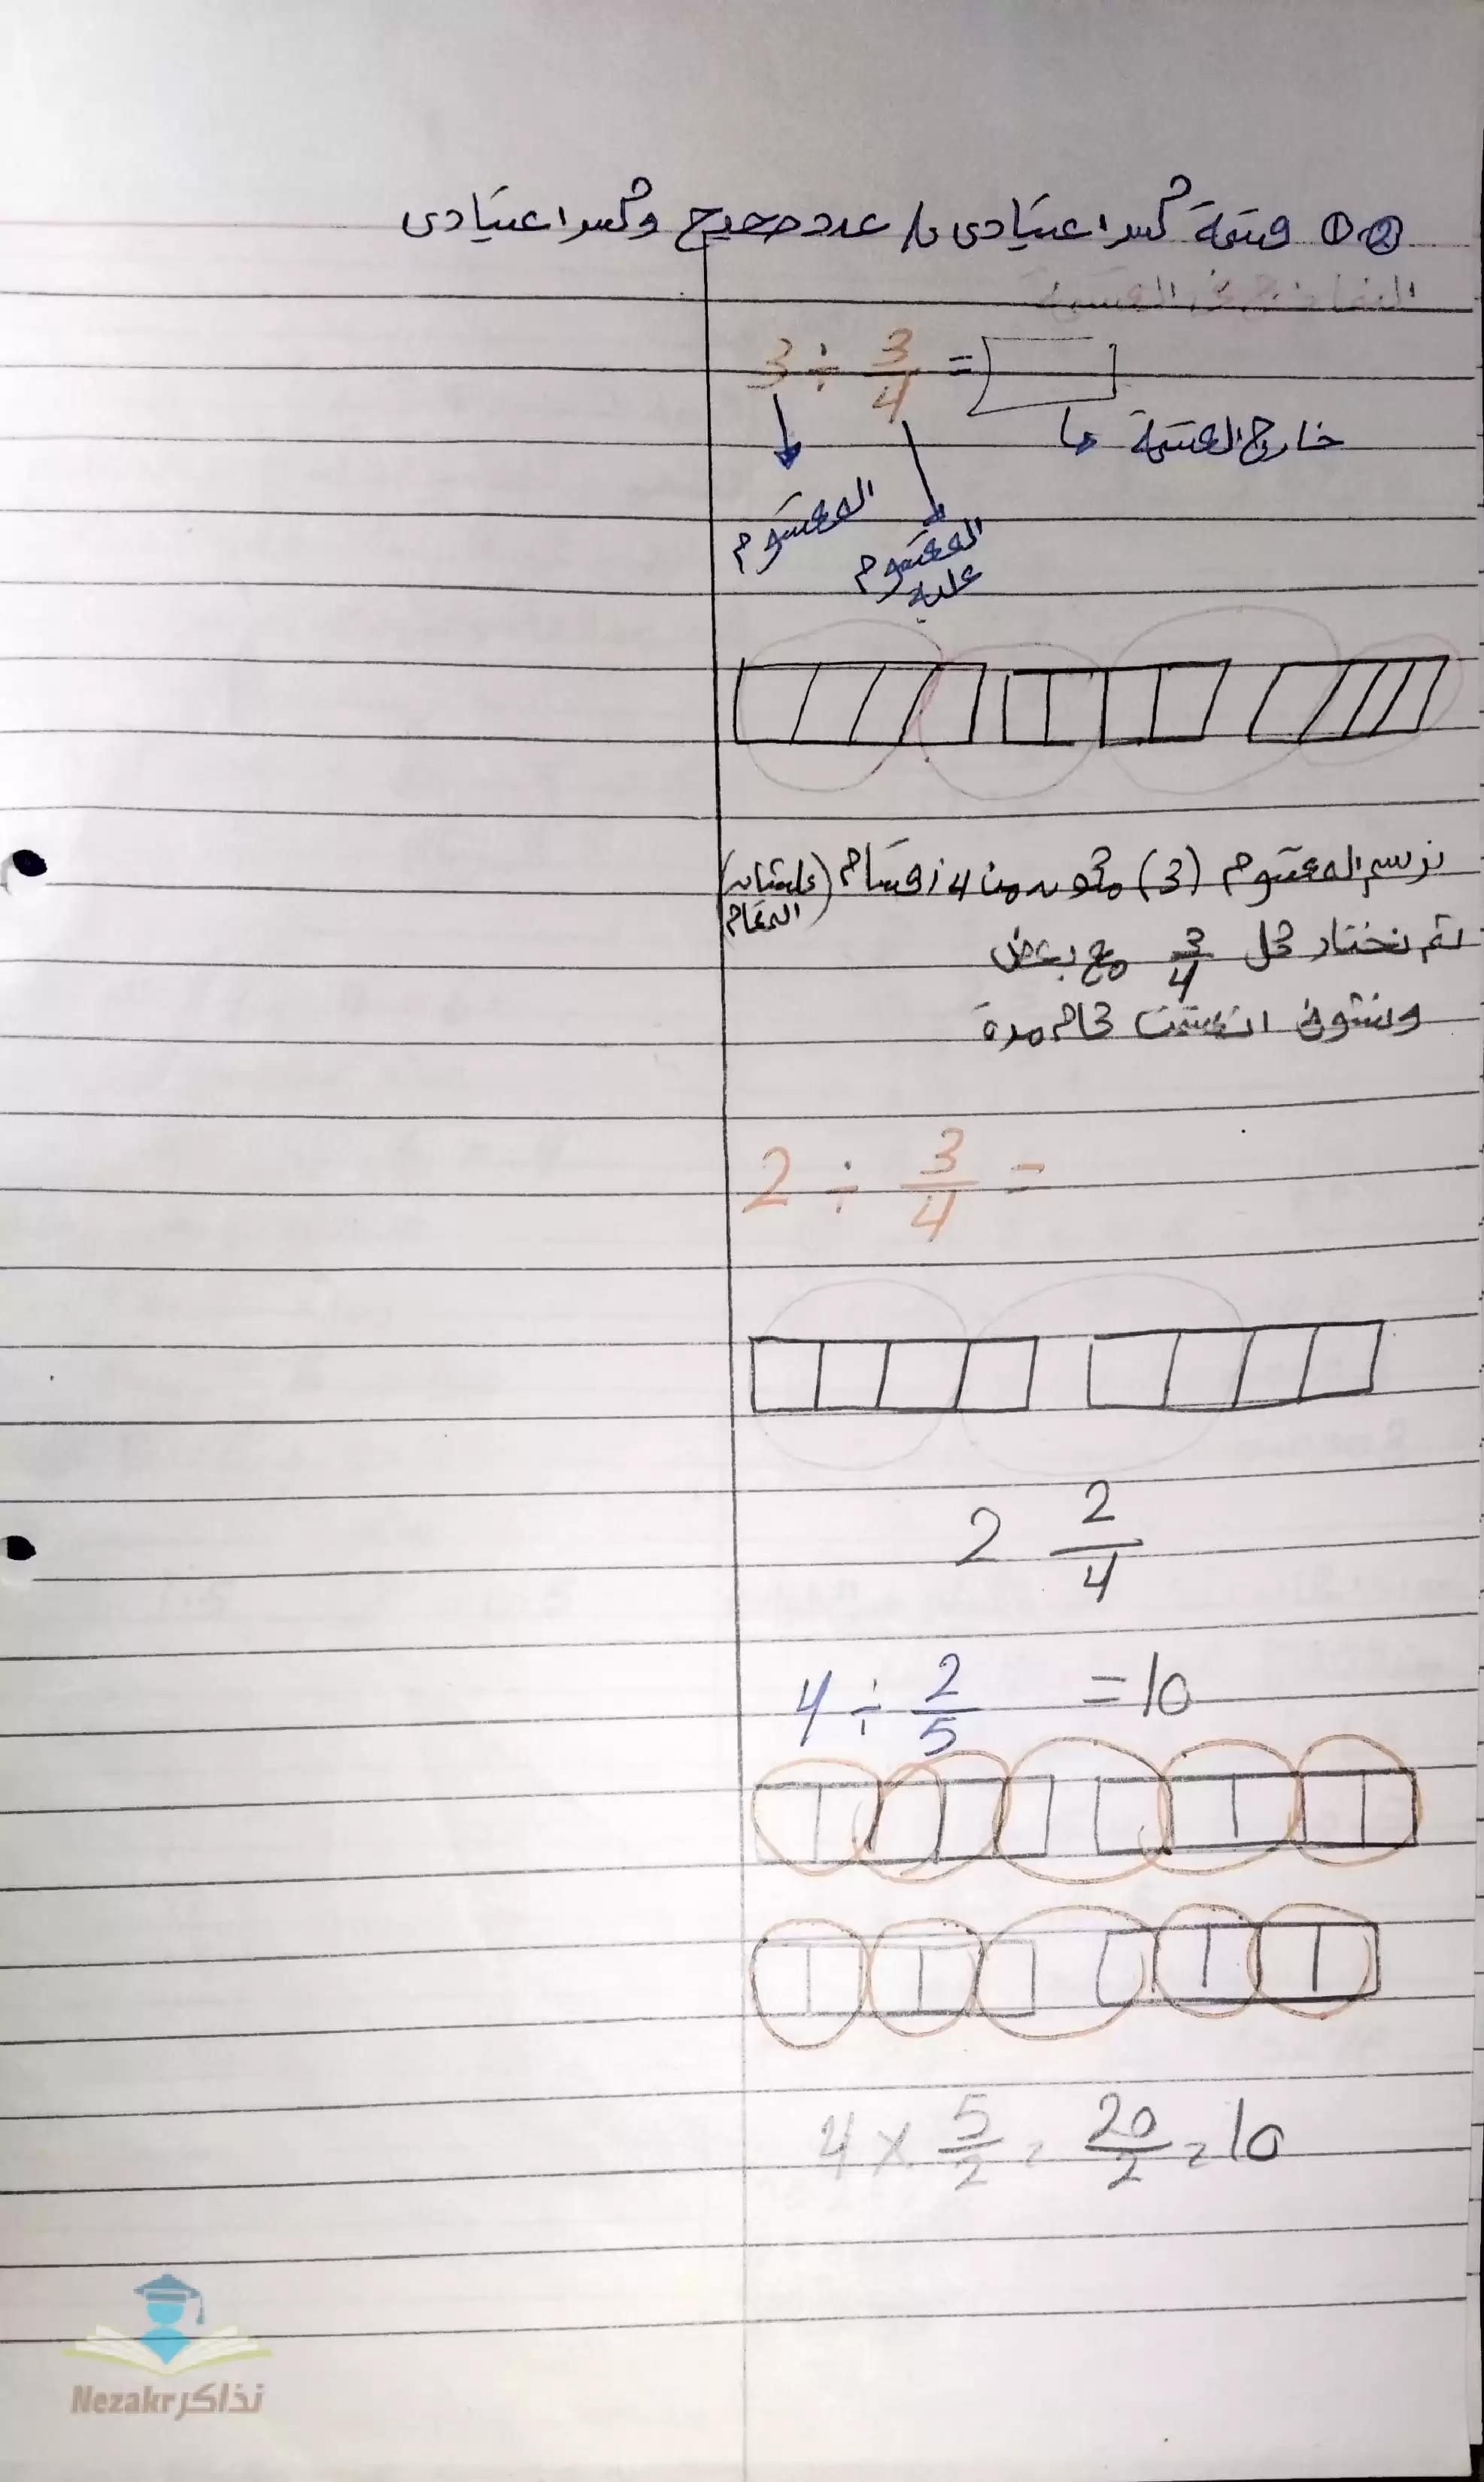 ①② قسمة كسر اعتيادي / عدد صحيح وكسر اعتيادي
النماذج في القسمة
3 ÷ 3/4 =
خارج القسمة
المقسوم
المقسوم
عليه
نرسم المقسوم (3) مكون من 4 أقسام (علشان
المقام)
ثم نختار كل 3/4 مع بعض
ونشوف اتقسمت كام مرة
2 ÷ 3/4 =
2 2/4
4 ÷ 2/5 = 10
4 × 5/2 = 20/2 = 10
Nezakr نذاكر